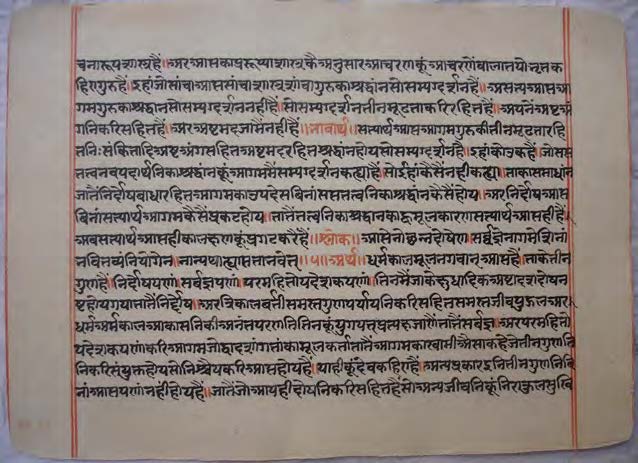 चनारूपशास्त्रहैं॥अरआप्तकाप्ररूप्याशास्त्रकैअनुसारआचरणकूंआचरणेंवालातपोभृतक
हिएगुरुहैं॥इहांजोसांचाआप्तसांचाशास्त्रसांचागुरुकाश्रद्धांनसोसम्यग्दर्शनहैं॥असत्यआप्तआ
गमगुरुकाश्रद्धानसोसम्यग्दर्शननहींहैं॥सोसम्यग्दर्शनतीनमूढताकरिरहितहैं॥अपनेंअष्टअं
गनिकरिसहितहैं॥अरअष्टमदजामैंनहींहैं॥भावार्थ॥सत्यार्थआप्तआगमगुरुकीतीनमूढतारहि
तनिःसंकितादिअष्टअंगसहितअष्टमदरहितश्रद्धांनहोयसोसम्यग्दर्शनहैं॥इहांकोउकहैं॥जोसप्त
तत्वनवपदार्थनिकाश्रद्धांनकूंआगममैंसम्यग्दर्शनकह्याहैं॥सोईहांकैसैंनहींकह्या॥ताकासमाधांन
जातैंनिर्दोषबाधारहितआगमकाउपदेसबिनांसप्ततत्वनिकाश्रद्धांनकैसेंहोय॥अरनिर्दोषआप्त
बिनांसत्यार्थआगमकैसैंप्रगटहोय॥तातैंतत्वनिकाश्रद्धांनकाहूमूलकारणसत्यार्थआप्तहीहैं॥
अबसत्यार्थआप्तहीकालक्षणकूंप्रगटकरैंहैं॥श्लोक॥आप्तेनोछिन्नदोषेण॥सर्वज्ञेनागमेशिनां
भवितव्यंनियोगेन॥नान्यथाह्याप्तताभवेत्॥५॥अर्थ॥धर्मकामूलभगवानआप्तहैं॥ताकेतीन
गुणहैं॥निर्दोषपणां॥सर्वज्ञपणां॥परमहितोपदेशकपणां॥तिनमैंजाकेक्षुधादिकअष्टादशदोषन
ष्टहोयगयातातैंनिर्दोष॥अरत्रिकालवर्तीसमस्तगुणपर्यायनिकरिसहितसमस्तजीवपुद्गलअर
धर्मअधर्मकालआकासनिकीअनंतपरणतितिनकूंयुगपत्प्रत्यक्षजाणेंतातैंसर्वज्ञ॥अरपरमहितो
पदेशकपणांकरिआगमजोद्वादशांगताकामूलकर्तातातैंआगमकास्वामीअैसाकहेजेतीनगुणनि
निकरिसंयुक्तहोयसोनिश्चैयकरिआप्तहोयहैं॥याहीकूंदेवकहिएहैं॥अन्यप्रकारइनितीनगुणनिबि
नांआप्तपणांनहींहोयहैं॥जातैंजोआपहीदोषनिकरिसहितहैंसोअन्यजीवनिकूंनिराकुलसुखि